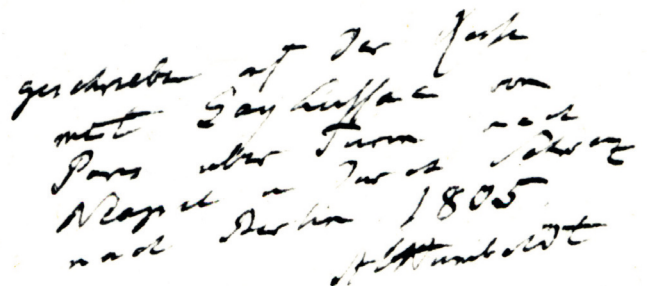 geschrieben auf der Reise
mit Gay Lussac von
Paris über Turin nach
Neapel u durch Schweiz
nach Berlin 1805
AvHumboldt